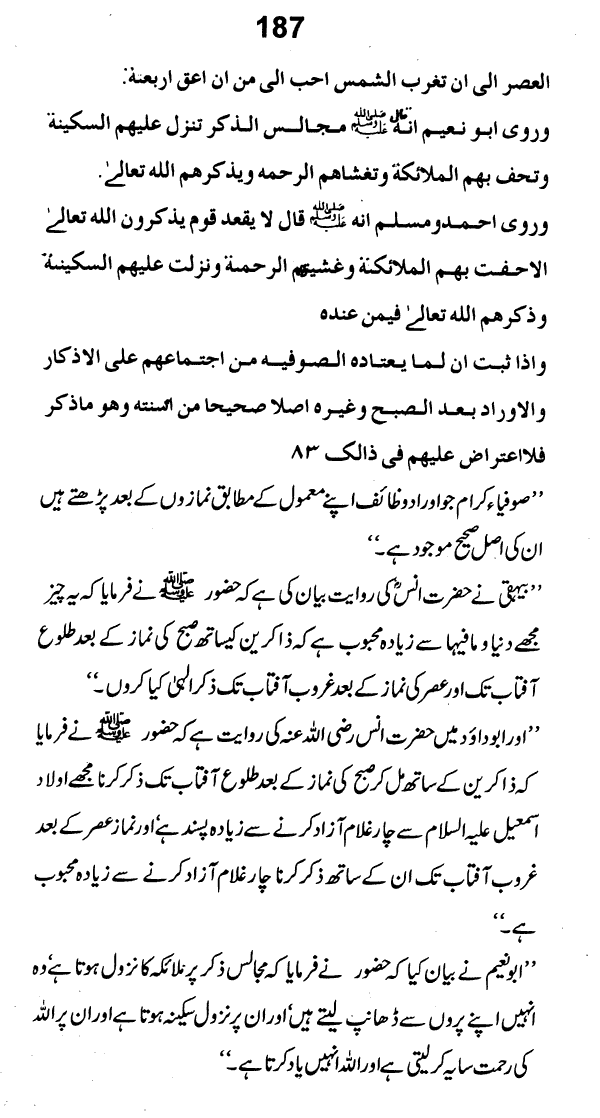 187
العصر الى ان تغرب الشمس احب الى من ان اعق اربعة.
وروى ابو نعيم انه تعالى ﷺ مجالس الذكر تنزل عليهم السكينة
وتحف بهم الملائكة وتغشاهم الرحمه ويذكرهم الله تعالىٰ.
وروى احمدومسلم انه ﷺ قال لا يقعد قوم يذكرون الله تعالىٰ
الاحفت بهم الملائكة وغشيتهم الرحمة ونزلت عليهم السكينة
وذكرهم الله تعالىٰ فيمن عنده
واذا ثبت ان لما يعتاده الصوفيه من اجتماعهم على الاذكار
والاوراد بعد الصبح وغيره اصلا صحيحا من السنته وهو ماذكر
فلااعتراض عليهم فى ذالک ۸۳
’’صوفیاء کرام جو اوراد و وظائف اپنے معمول کے مطابق نمازوں کے بعد پڑھتے ہیں
ان کی اصل صحیح موجود ہے۔‘‘
’’بیہقی نے حضرت انسؓ کی روایت بیان کی ہے کہ حضور ﷺ نے فرمایا کہ یہ چیز
مجھے دنیا و مافیہا سے زیادہ محبوب ہے کہ ذاکرین کیساتھ صبح کی نماز کے بعد طلوع
آفتاب تک اور عصر کی نماز کے بعد غروب آفتاب تک ذکر الہیٰ کیا کروں۔‘‘
’’اور ابوداؤد میں حضرت انس رضی اللہ عنہ کی روایت ہے کہ حضور ﷺ نے فرمایا
کہ ذاکرین کے ساتھ مل کر صبح کی نماز کے بعد طلوع آفتاب تک ذکر کرنا مجھے اولاد
اسمعیل علیہ السلام سے چار غلام آزاد کرنے سے زیادہ پسند ہے‘ اور نماز عصر کے بعد
غروب آفتاب تک ان کے ساتھ ذکر کرنا چار غلام آزاد کرنے سے زیادہ محبوب
ہے۔‘‘
’’ابو نعیم نے بیان کیا کہ حضور نے فرمایا کہ مجالس ذکر پر ملائکہ کا نزول ہوتا ہے‘ وہ
انہیں اپنے پروں سے ڈھانپ لیتے ہیں‘ اور ان پر نزول سکینہ ہوتا ہے اور ان پر اللہ
کی رحمت سایہ کر لیتی ہے اور اللہ انہیں یاد کرتا ہے۔‘‘